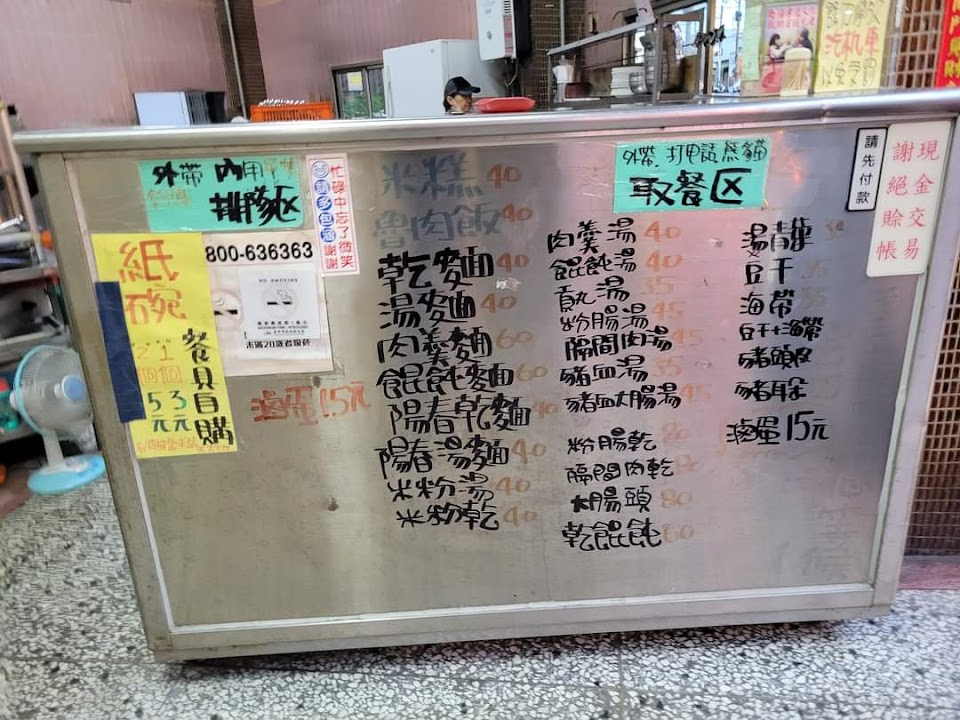 外帶 內用
排隊区
紙碗
餐具自購
2個5元
1個3元
0800-636363
NO SMOKING
未滿20歲者吸菸
忙碌中忘了微笑
請多包涵 謝謝
滷蛋15元
米糕 40
魯肉飯 40
乾麵 40
湯麵 40
肉羹麵 60
餛飩麵 60
陽春乾麵 40
陽春湯麵 40
米粉湯 40
米粉乾 40
外帶.打甲諾熊貓
取餐区
肉羹湯 40
餛飩湯 40
貢丸湯 35
粉腸湯 45
隔間肉湯 45
豬血湯 35
豬血大腸湯 45
粉腸乾
隔間肉乾
大腸頭 80
乾餛飩 60
湯青菜
豆干
海帶
豆干+海帶
豬頭皮
豬耳朵
滷蛋15元
請先付款
現金交易
謝絕賒帳